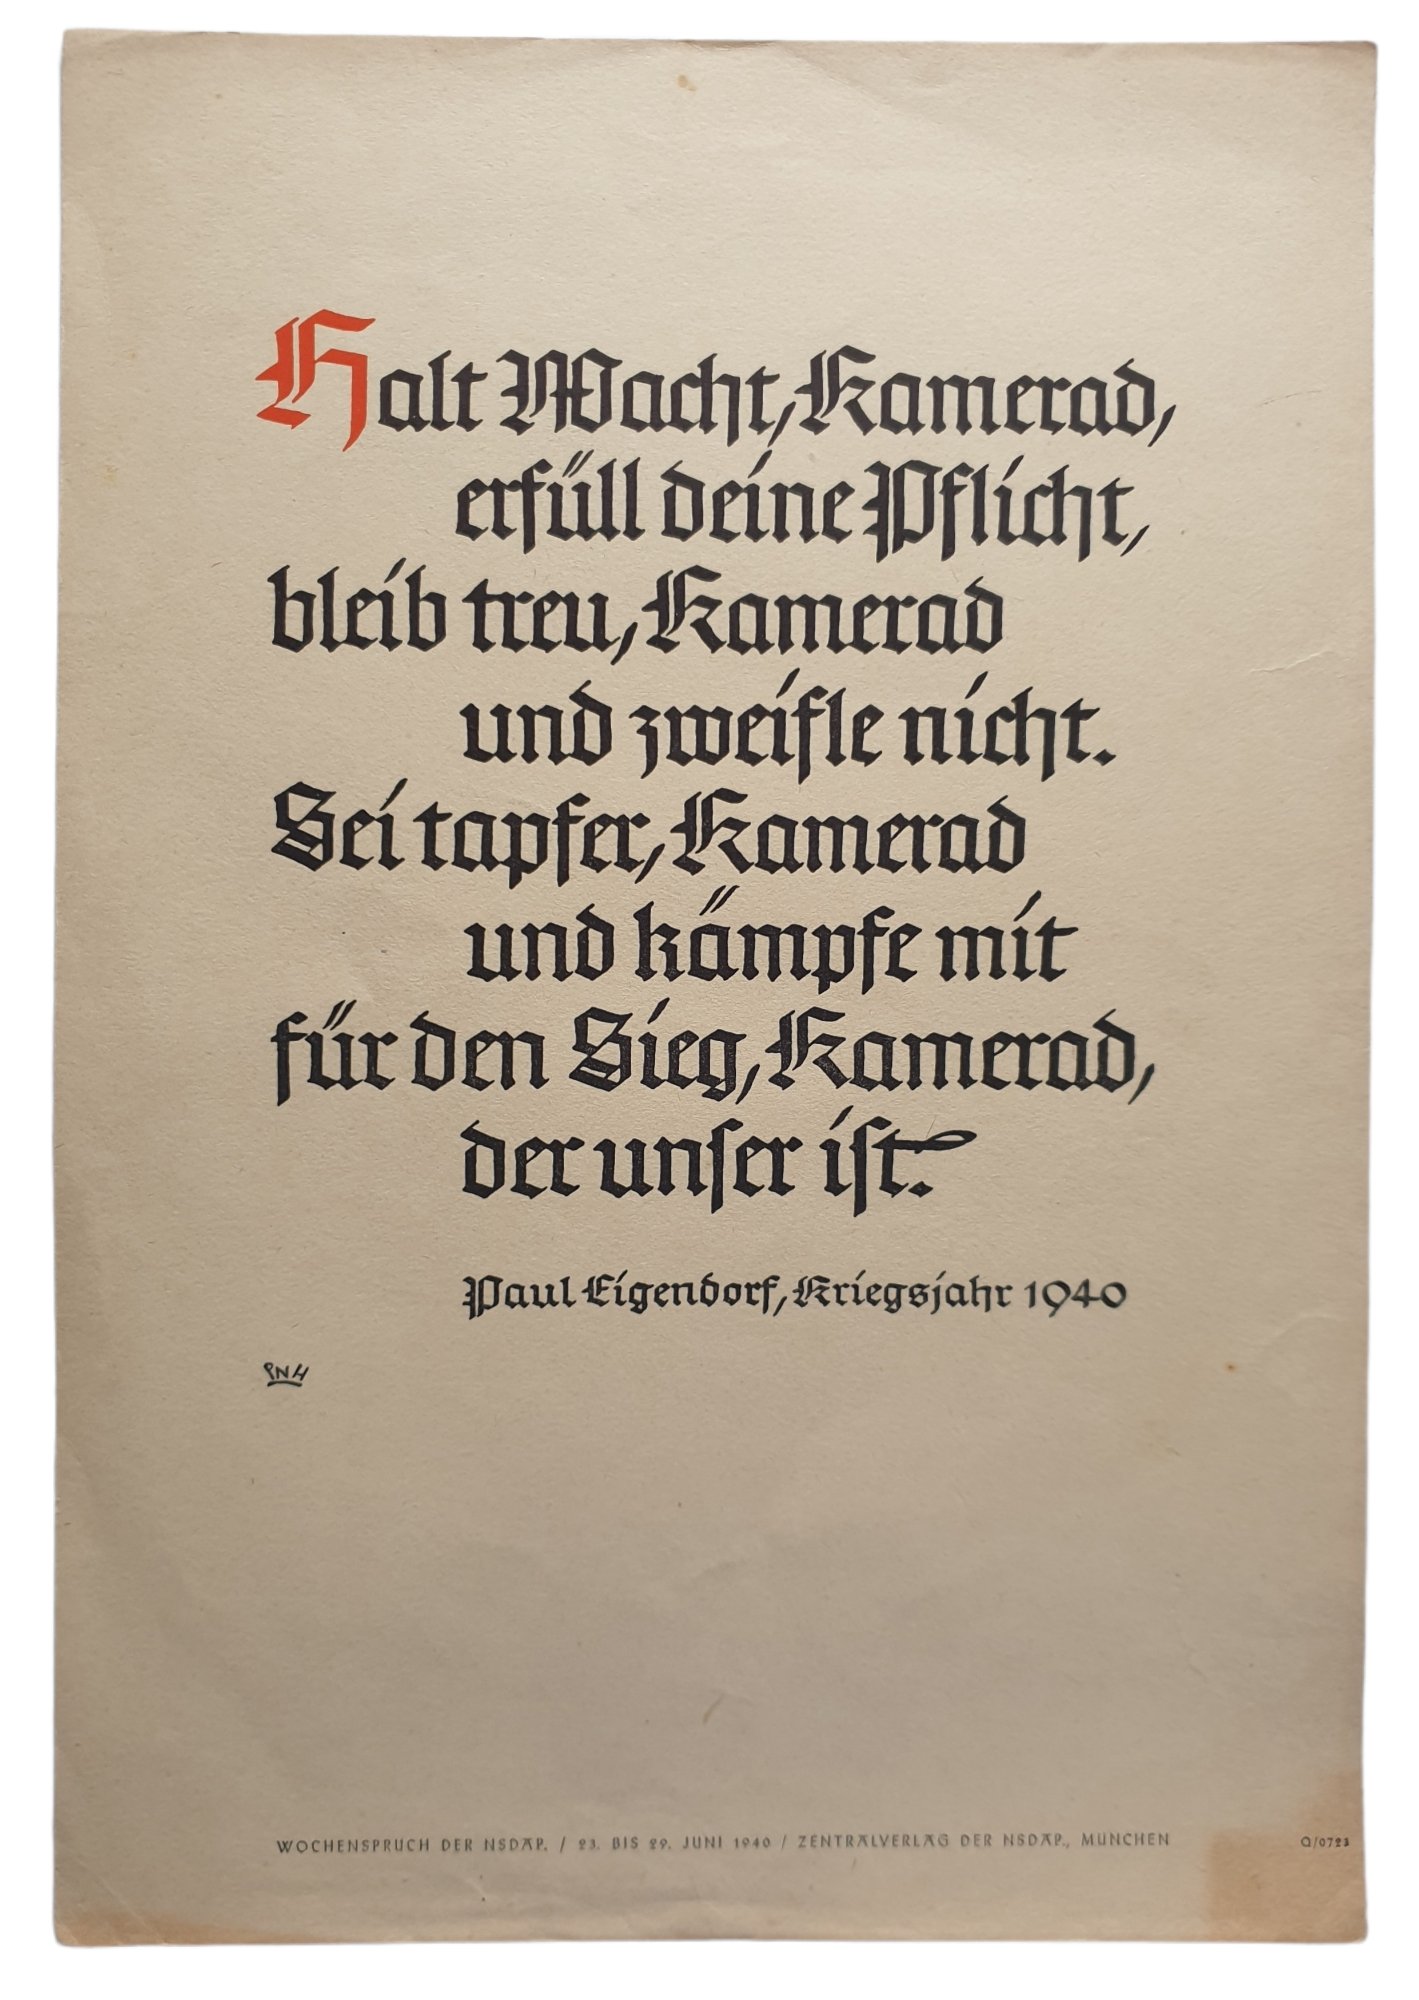 Halt Wacht, Kamerad,
erfüll deine Pflicht,
bleib treu, Kamerad
und zweifle nicht.
Sei tapfer, Kamerad
und kämpfe mit
für den Sieg, Kamerad,
der unſer iſt.
Paul Eigendorf, Kriegsjahr 1940
PNH
WOCHENSPRUCH DER NSDAP. / 23. BIS 29. JUNI 1940 / ZENTRALVERLAG DER NSDAP., MÜNCHEN Q/0723